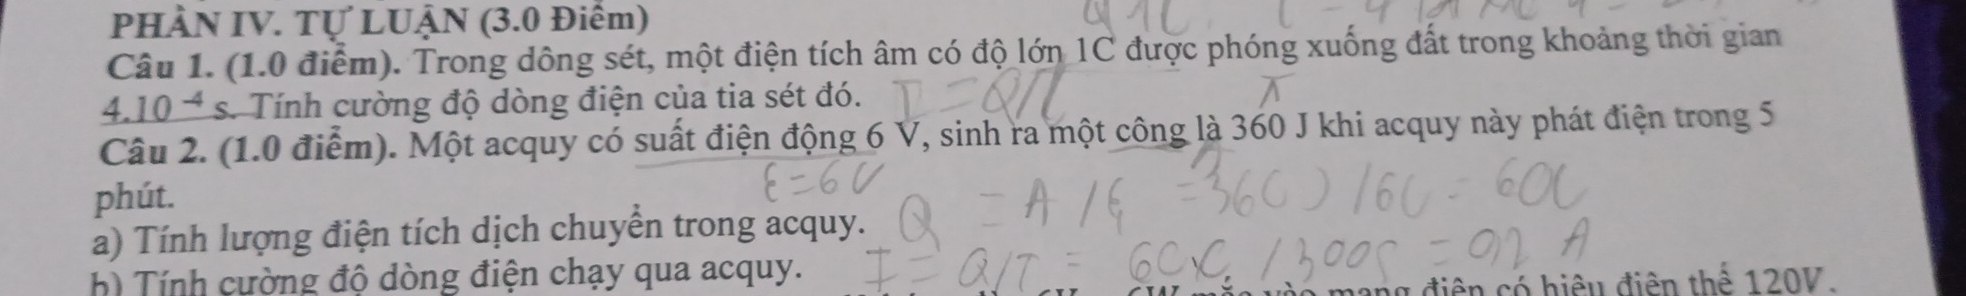 PHẦN IV. TỰ LUẬN (3.0 Điểm)
Câu 1. (1.0 điểm). Trong dông sét, một điện tích âm có độ lớn 1C được phóng xuống đất trong khoảng thời gian
4.10⁻⁴ s. Tính cường độ dòng điện của tia sét đó. I = Q/t
Câu 2. (1.0 điểm). Một acquy có suất điện động 6 V, sinh ra một công là 360 J khi acquy này phát điện trong 5
phút. ξ = 6V
a) Tính lượng điện tích dịch chuyển trong acquy. Q = A/ξ = 360J/6V = 60C
b) Tính cường độ dòng điện chạy qua acquy. I = Q/T = 60C/300s = 0,2 A
mắc vào mạng điện có hiệu điện thế 120V.